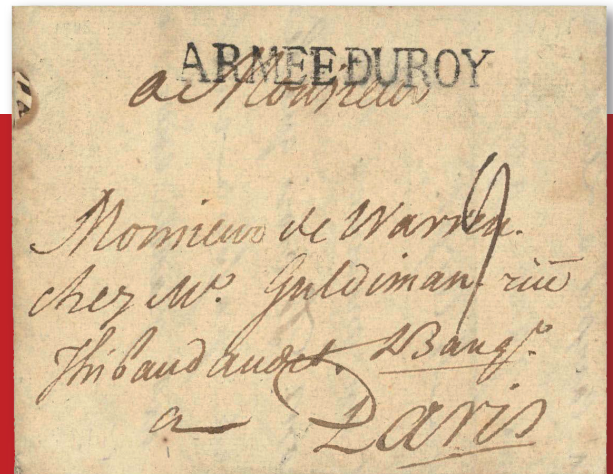 ARMEE DU ROY
a Monsieur
Monsieur de Warren.
chez Mr. Guldiman rüe
Thibaud audet. Banqr.
a Paris
9